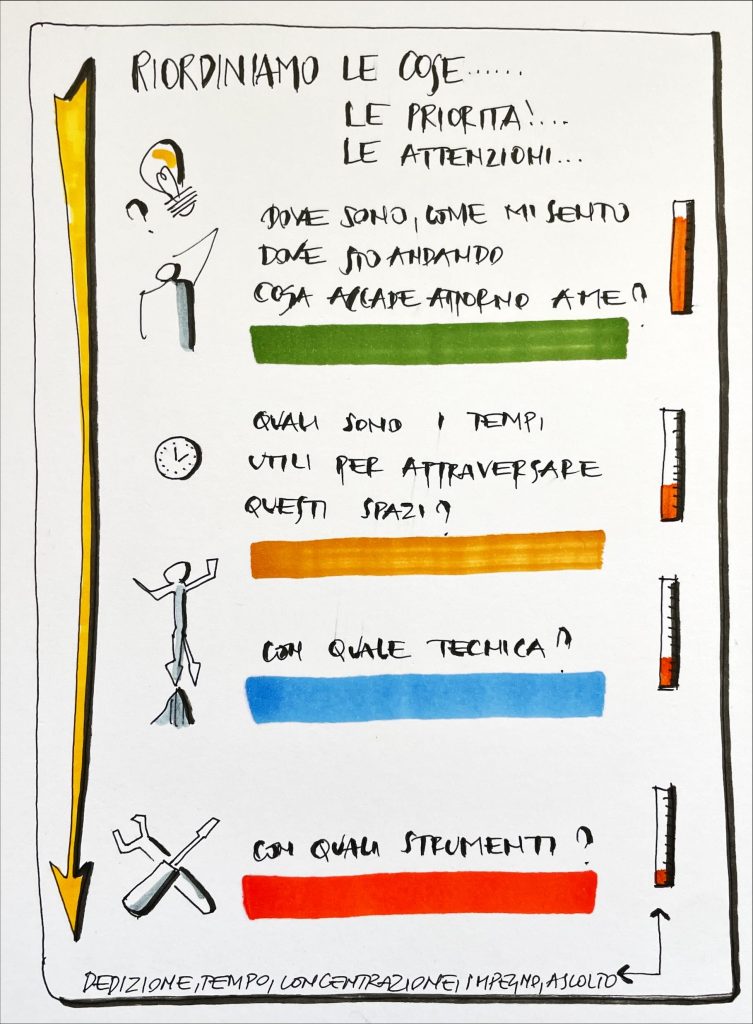 RIORDINIAMO LE COSE......
LE PRIORITA!...
LE ATTENZIONI...
?
DOVE SONO, COME MI SENTO
DOVE STO ANDANDO
COSA ACCADE ATTORNO A ME?
QUALI SONO I TEMPI
UTILI PER ATTRAVERSARE
QUESTI SPAZI?
CON QUALE TECNICA?
CON QUALI STRUMENTI?
DEDIZIONE, TEMPO, CONCENTRAZIONE, IMPEGNO, ASCOLTO